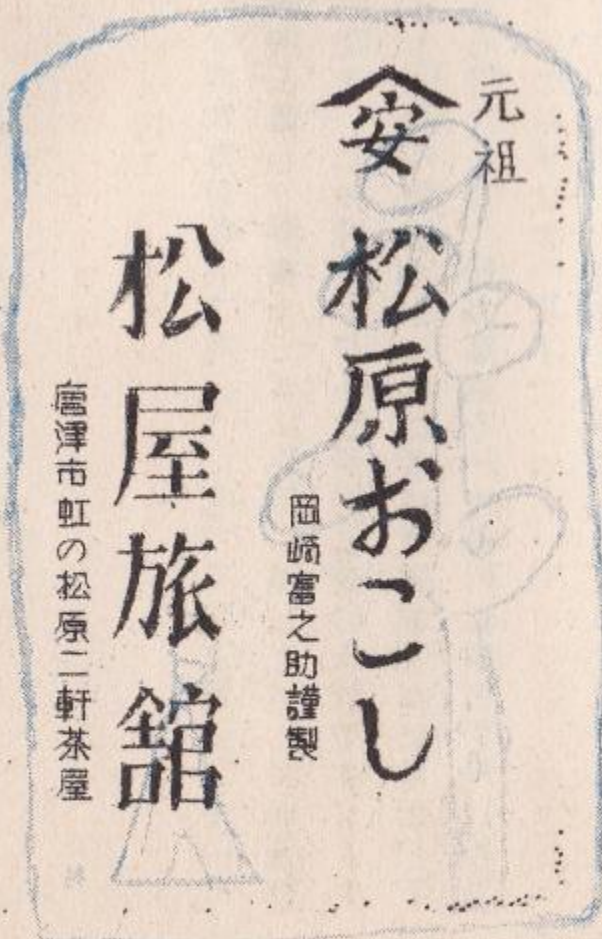 元祖
安 松原おこし
岡崎富之助謹製
松屋旅館
唐津市虹の松原二軒茶屋